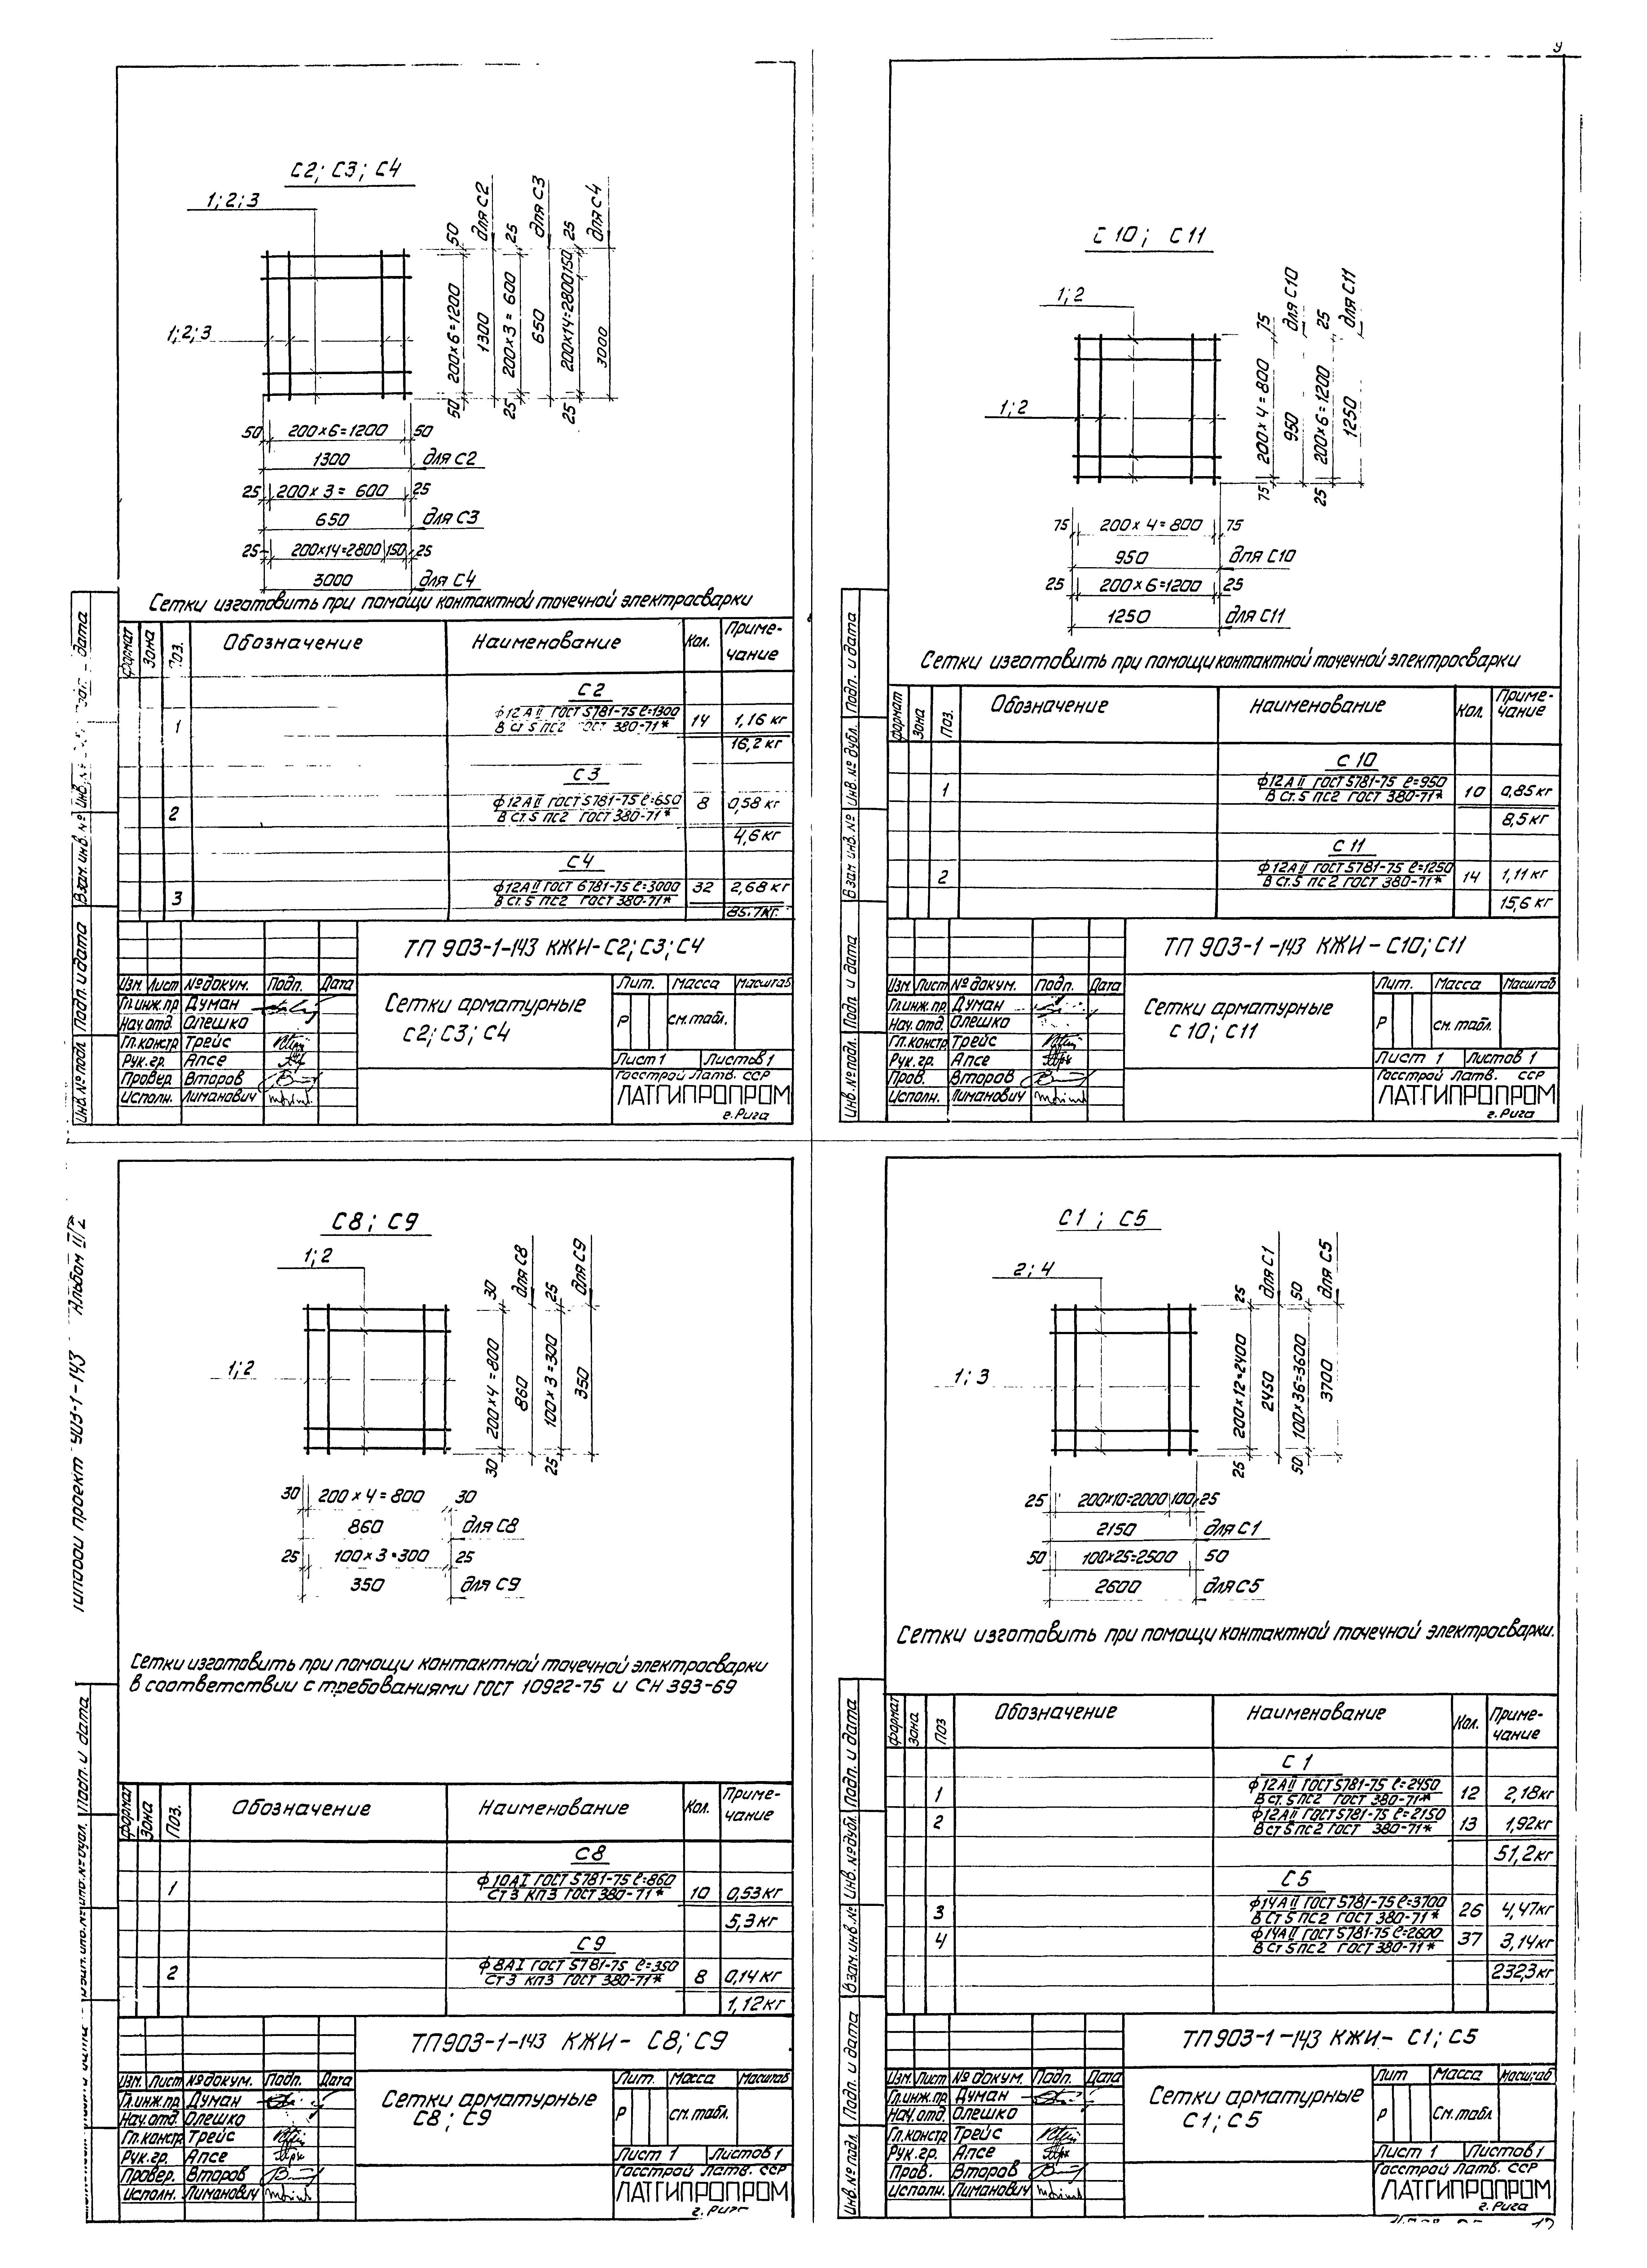 9
С2; С3; С4
1; 2; 3
1; 2; 3
50 200х6=1200 50
1300 для С2
25 200х3= 600 25
650 для С3
25 200х14=2800 150 25
3000 для С4
50 200х6=1200 50
1300 для С2
25 200х3= 600 25
650 для С3
25 200х14=2800 150 25
3000 для С4
Сетки изготовить при помощи контактной точечной электросварки
формат Зона Поз. Обозначение Наименование Кол. Приме-
чание
С2
1 ф12АII ГОСТ 5781-75 ℓ=1300 14 1,16 кг
В Ст.5 пс2 ГОСТ 380-71*
16,2 кг
С3
2 ф12АII ГОСТ 5781-75 ℓ=650 8 0,58 кг
В Ст.5 пс2 ГОСТ 380-71*
4,6 кг
С4
3 ф12АII ГОСТ 6781-75 ℓ=3000 32 2,68 кг
В Ст.5 пс2 ГОСТ 380-71*
85.7кг.
ТП 903-1-143 КЖИ-С2; С3; С4
Изм. Лист № докум. Подп. Дата
Гл.инж.пр Думан
Нач.отд. Олешко
Гл.констр Трейс
Рук.гр. Апсе
Провер. Второв
Исполн. Лиманович
Сетки арматурные
С2; С3; С4
Лит. Масса Масштаб
Р см.табл.
Лист 1 Листов 1
Госстрой Латв. ССР
ЛАТГИПРОПРОМ
г.Рига
Инв.№ подл. Подп. и дата Взам.инв.№
С10; С11
1; 2
1; 2
75 200х4=800 75
950 для С10
25 200х6=1200 25
1250 для С11
75 200х4=800 75
950 для С10
25 200х6=1200 25
1250 для С11
Сетки изготовить при помощи контактной точечной электросварки
формат Зона Поз. Обозначение Наименование Кол. Приме-
чание
С10
1 ф12АII ГОСТ 5781-75 ℓ=950 10 0,85кг
В Ст.5 пс2 ГОСТ 380-71*
8,5кг
С11
2 ф12АII ГОСТ 5781-75 ℓ=1250 14 1,11кг
В Ст.5 пс2 ГОСТ 380-71*
15,6 кг
ТП 903-1-143 КЖИ-С10; С11
Изм. Лист № докум. Подп. Дата
Гл.инж.пр Думан
Нач.отд. Олешко
Гл.констр Трейс
Рук.гр. Апсе
Пров. Второв
Исполн. Лиманович
Сетки арматурные
С10; С11
Лит. Масса Масштаб
Р см.табл.
Лист 1 Листов 1
Госстрой Латв. ССР
ЛАТГИПРОПРОМ
г.Рига
Инв.№ подл. Подп. и дата Взам.инв.№ Инв.№ дубл. Подп. и дата
проект 903-1-143 Альбом II/2
С8; С9
1; 2
1; 2
30 200х4=800 30
860 для С8
25 100х3=300 25
350 для С9
30 200х4=800 30
860 для С8
25 100х3=300 25
350 для С9
Сетки изготовить при помощи контактной точечной электросварки
в соответствии с требованиями ГОСТ 10922-75 и СН 393-69
формат Зона Поз. Обозначение Наименование Кол. Приме-
чание
С8
1 ф10АI ГОСТ 5781-75 ℓ=860 10 0,53кг
Ст3 кп3 ГОСТ 380-71*
5,3кг
С9
2 ф8АI ГОСТ 5781-75 ℓ=350 8 0,14кг
Ст3 кп3 ГОСТ 380-71*
1,12кг
ТП903-1-143 КЖИ-С8; С9
Изм. Лист № докум. Подп. Дата
Гл.инж.пр Думан
Нач.отд. Олешко
Гл.констр Трейс
Рук.гр. Апсе
Провер. Второв
Исполн. Лиманович
Сетки арматурные
С8; С9
Лит. Масса Масштаб
Р см.табл.
Лист 1 Листов 1
Госстрой Латв. ССР
ЛАТГИПРОПРОМ
г. Рига
С1; С5
2; 4
1; 3
25 200х12=2400 25
2450 для С1
50 100х36=3600 50
3700 для С5
25 200х10=2000 100 25
2150 для С1
50 100х25=2500 50
2600 для С5
Сетки изготовить при помощи контактной точечной электросварки.
формат Зона Поз Обозначение Наименование Кол. Приме-
чание
С1
1 ф12АII ГОСТ 5781-75 ℓ=2450 12 2,18кг
В Ст.5 пс2 ГОСТ 380-71*
2 ф12АII ГОСТ 5781-75 ℓ=2150 13 1,92кг
В Ст5 пс2 ГОСТ 380-71*
51,2кг
С5
3 ф14АII ГОСТ 5781-75 ℓ=3700 26 4,47кг
В Ст5 пс2 ГОСТ 380-71*
4 ф14АII ГОСТ 5781-75 ℓ=2600 37 3,14кг
В Ст5 пс2 ГОСТ 380-71*
232,3кг
ТП903-1-143 КЖИ- С1; С5
Изм. Лист № докум. Подп. Дата
Гл.инж.пр Думан
Нач.отд. Олешко
Гл.констр Трейс
Рук.гр. Апсе
Пров. Второв
Исполн. Лиманович
Сетки арматурные
С1; С5
Лит Масса Масштаб
Р См.табл
Лист 1 Листов 1
Госстрой Латв. ССР
ЛАТГИПРОПРОМ
г. Рига
Инв.№ подл. Подп. и дата Взам.инв.№ Инв.№ дубл. Подп. и дата